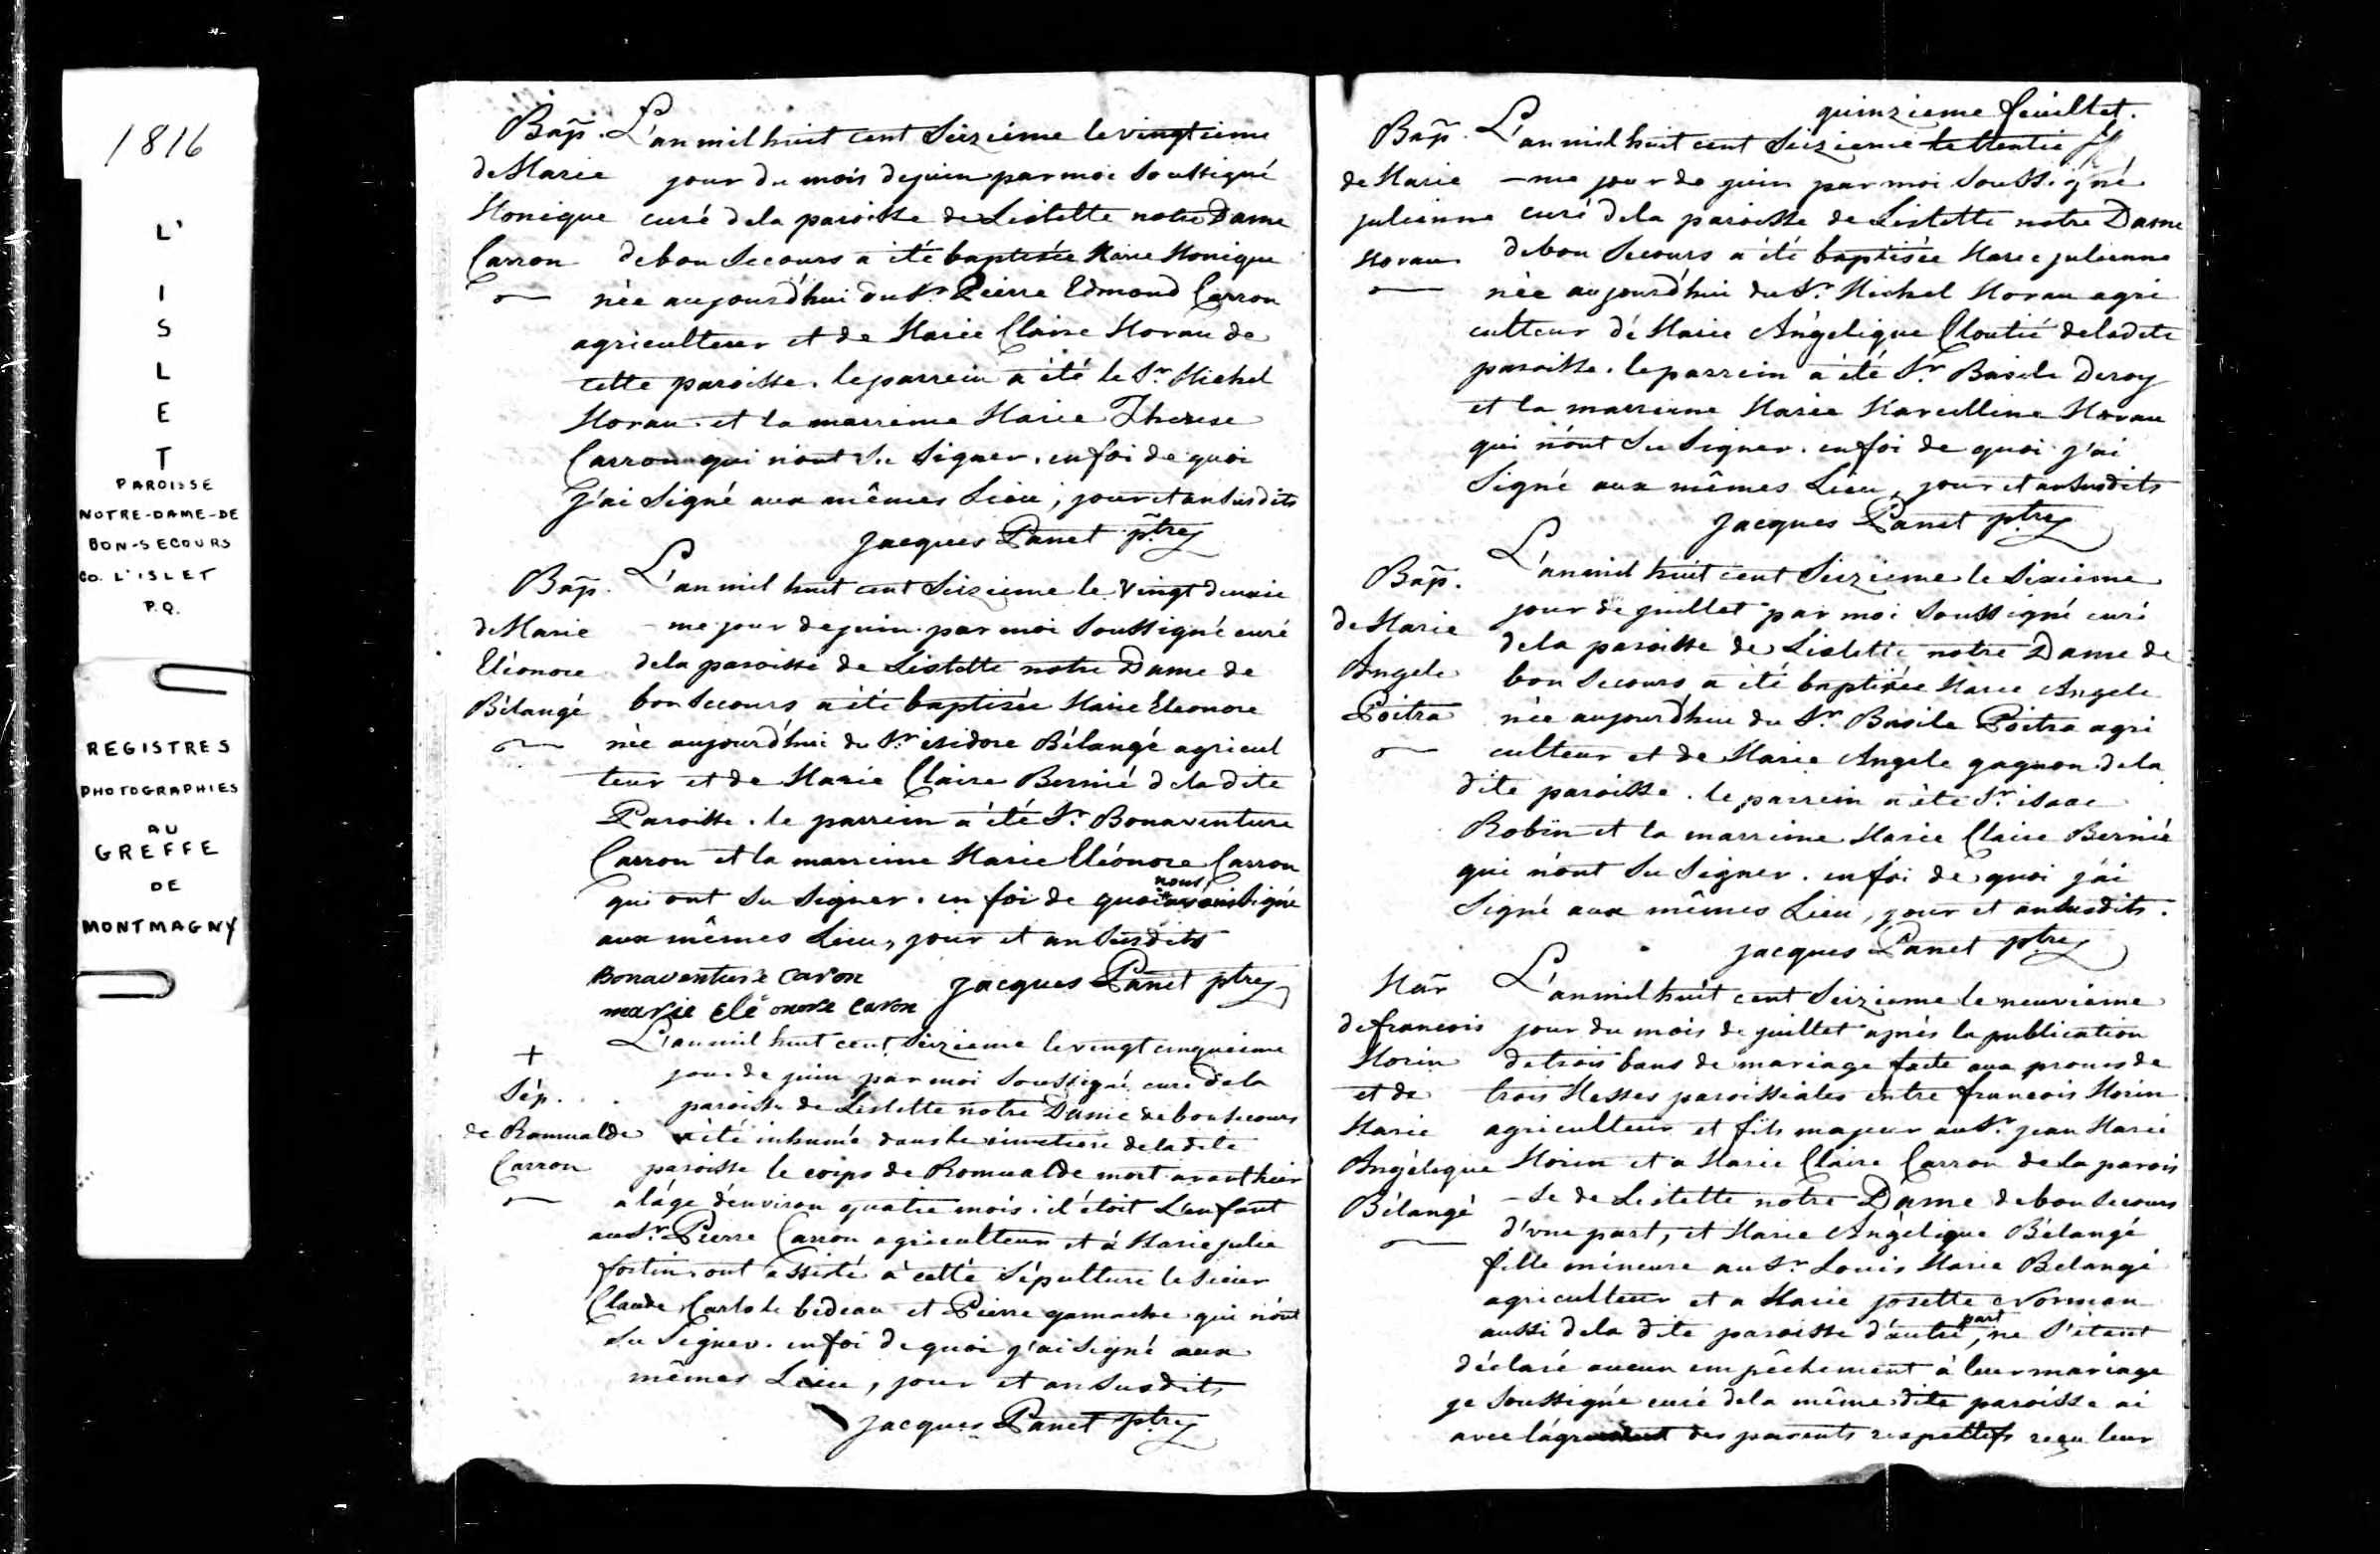 1816
L'
I
S
L
E
T
PAROISSE
NOTRE-DAME-DE
BON-SECOURS
CO. L'ISLET
P.Q.
REGISTRES
PHOTOGRAPHIES
AU
GREFFE
DE
MONTMAGNY
Bap̃. L'an mil huit cent Seizieme le vingtieme
de Marie jour du mois de juin par moi Soussigné
Monique curé dela paroisse de Lislette notre Dame
Carron debon Secours a été baptisée Marie Monique
née aujourd'hui du Sr. Pierre Edmond Carron
agriculteur et de Marie Claire Morau de
cette paroisse. le parrein a été le Sr. Michel
Morau et la marreine Marie Therese
Carron qui n'ont Su Signer. en foi de quoi
J'ai Signé aux mêmes Lieu, jour et an Susdits
Jacques Panet ptre
Bap̃. L'an mil huit cent Seizieme le Vingt deuxie
de Marie -me jour de juin par moi Soussigné curé
Eléonore dela paroisse de Lislette notre Dame de
Bélangé bon Secours a été baptisée Marie Eleonore
née aujourd'hui du Sr. isidore Bélangé agricul
teur et de Marie Claire Bernié dela dite
Paroisse. le parrein a été Sr. Bonaventure
Carron et la marreine Marie Eléonore Carron
qui ont Su Signer. en foi de quoi nous avons Signé
aux mêmes Lieu, jour et an Susdits
Bonaventure Caron Jacques Panet ptre
marie Elé onore Caron
L'an mil huit cent Seizieme le vingt cinquieme
+ jour de juin par moi Soussigné curé dela
Sép. paroisse de Lislette notre Dame de bon Secours
de Romualde a été inhumé dans le cimetiere deladite
Carron paroisse le corps de Romualde mort avant hier
a l'âge d'environ quatre mois. il étoit L'enfant
au Sr. Pierre Carron agriculteur et à Marie julie
fortin. ont assisté à cette Sépulture le Sieur
Claude Carlos le bedeau et Pierre gamache qui n'ont
Su Signer. en foi de quoi j'ai Signé aux
mêmes Lieu, jour et an Susdits
Jacques Panet ptre
quinzieme feuillet.
Bap̃. L'an mil huit cent Seizieme le trentie
de Marie -me jour de juin par moi Soussigné
julienne curé dela paroisse de Lislette notre Dame
Morau debon Secours a été baptisée Marie julienne
née aujourd'hui du Sr. Michel Morau agri
culteur de Marie Angelique Cloutié deladite
paroisse. le parrein a été Sr. Basile Deroy
et la marreine Marie Marcelline Morau
qui n'ont Su Signer. en foi de quoi j'ai
Signé aux mêmes Lieu, jour et an Susdits
Jacques Panet ptre
Bap̃. L'an mil huit cent Seizieme le Sixieme
de Marie jour de juillet par moi Soussigné curé
Angele dela paroisse de Lislette notre Dame de
Poitra bon Secours a été baptisée Marie Angele
née aujourd'hui du Sr. Basile Poitra agri
culteur et de Marie Angele gagnon dela
dite paroisse. le parrein a été Sr. isaac
Robin et la marreine Marie Claire Bernié
qui n'ont Su Signer. en foi de quoi j'ai
Signé aux mêmes Lieu, jour et an Susdits.
Jacques Panet ptre
Mar̃ L'an mil huit cent Seizieme le neuvieme
de francois jour du mois de juillet après la publication
Morin de trois bans de mariage faite aux prones de
et de trois Messes paroissiales entre francois Morin
Marie agriculteur et fils majeur au Sr. jean Marie
Angélique Morin et a Marie Claire Carron de la parois
Bélangé -se de Lislette notre Dame debon Secours
d'une part, et Marie Angélique Bélangé
fille mineure au Sr. Louis Marie Belangé
agriculteur et a Marie josette Norman
aussi dela dite paroisse d'autre part, ne S'etant
déclaré aucun empêchement à leur mariage
je Soussigné curé dela même dite paroisse ai
avec des parents respectifs reçu leur